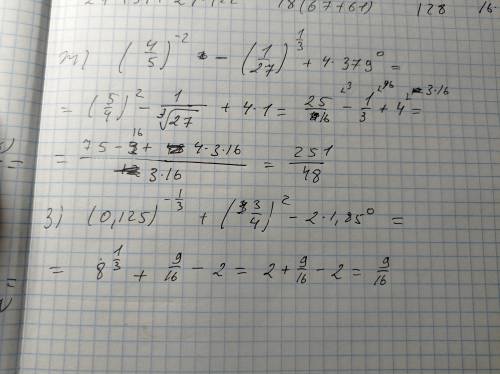 18(67+61) 128 16.
m) (4/5)^-2 - (1/27)^1/3 + 4·379^0 =
= (5/4)^2 - 1/∛27 + 4·1 = 25/16 - 1/3 + 4 =
= 75-16+ 4·3·16 / 3·16 = 251/48
3) (0,125)^-1/3 + (3/4)^2 - 2·1,85^0 =
= 8^1/3 + 9/16 - 2 = 2 + 9/16 - 2 = 9/16